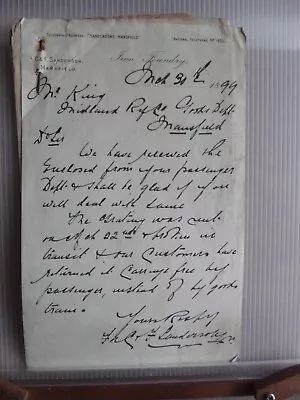 TELEGRAPHIC ADDRESS: "SANDERSONS MANSFIELD"
NATIONAL TELEPHONE Nº
C & F. SANDERSON,
MANSFIELD.
Iron Foundry,
Mch 30th 1899
Mr King
Midland Ry Co Goods Dept
Mansfield
D Sir
We have received the
Enclosed from your passenger
Dept & shall be glad if you
will deal with same
The grating was sent
on Mch 22nd & broken in
transit & our Customers have
returned it Carriage free by
passenger, instead of by goods
train.
Yours Resptly
C & F Sanderson